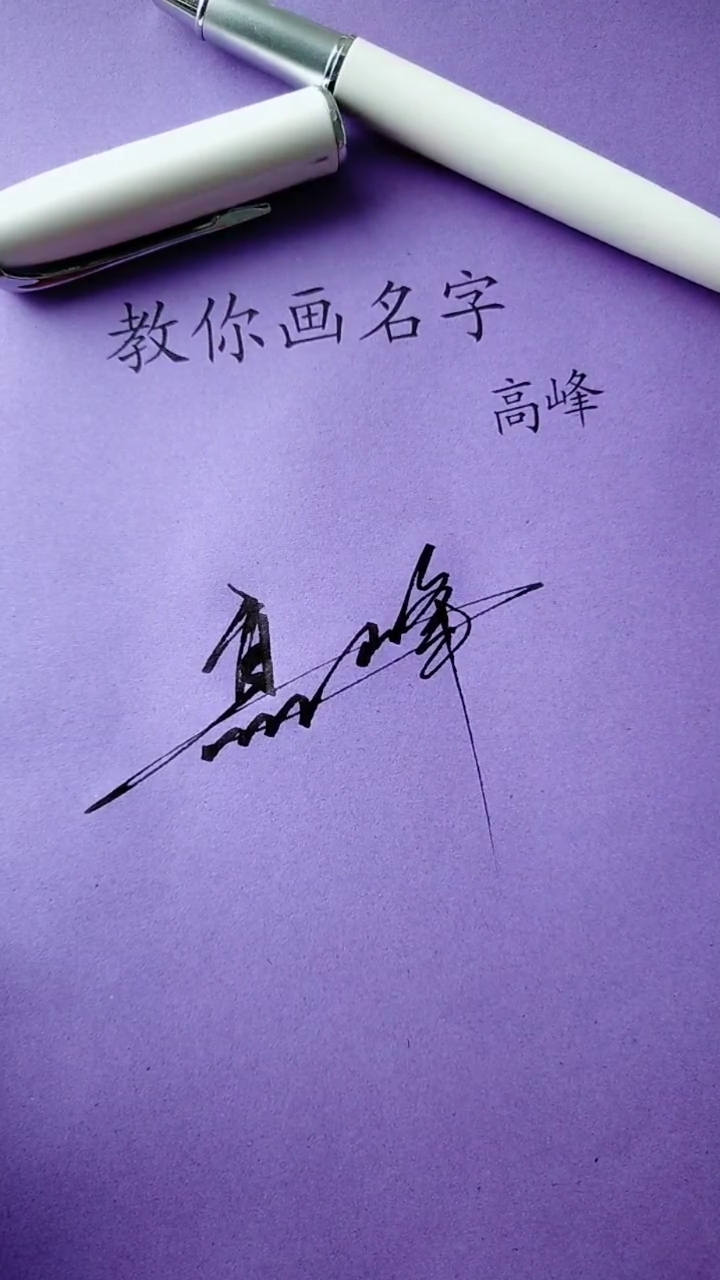 教你画名字
高峰
高峰